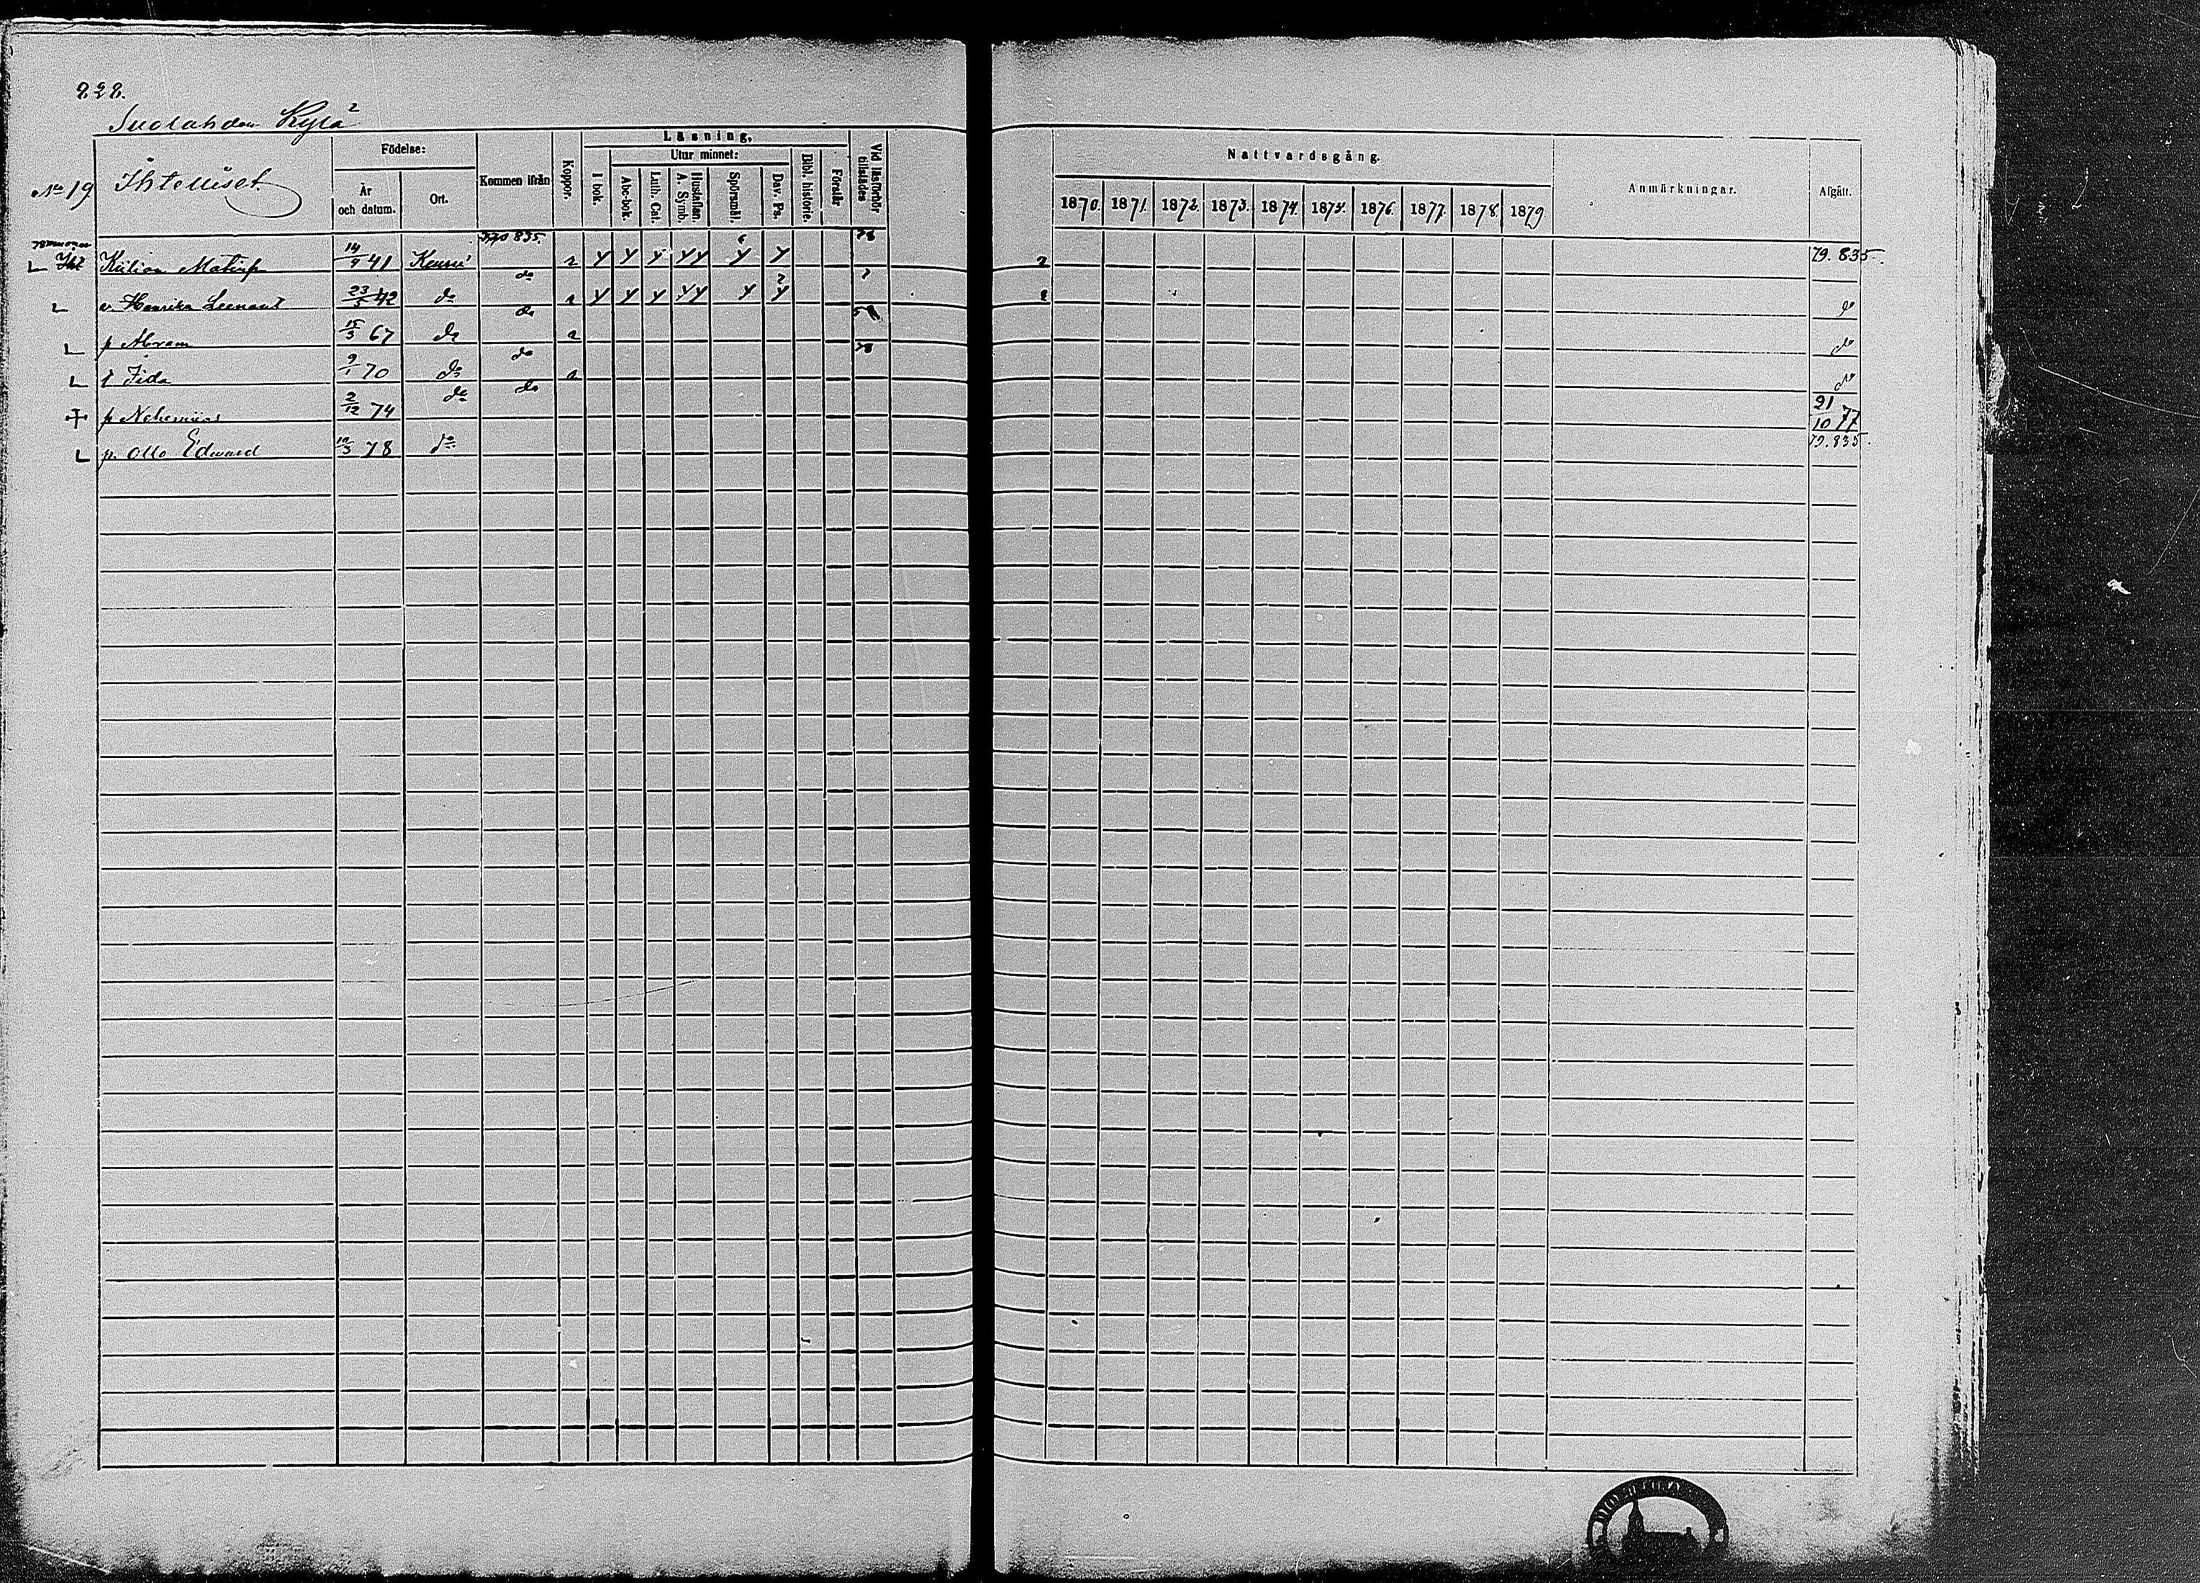 828.
Suolahden Kylä
2
Läsning.
Födelse:
Utur minnet:
No 19 Ihtelliset
År och datum.
Ort.
Kommen ifrån
Koppor.
I bok.
Abc-bok.
Luth. Cat.
Hustaflan. A. Symb.
Spörsmål.
Dav. Ps.
Bibl. historie.
Förstår
Vid läsförhör tillstädes
Nattvardsgång.
1870. 1871. 1872. 1873. 1874. 1875. 1876. 1877. 1878. 1879
Anmärkningar.
Afgått.
Kilian Matinp 14/9 41 835. 79. 835.
v. Henrika 23/5 42 do do
p Abram 15/3 67 do do do
t Fida 9/1 70 do do do
p Nehemias 2/12 74 do do 21/10 77
p. Otto Edward 10/3 78 do 79. 835.